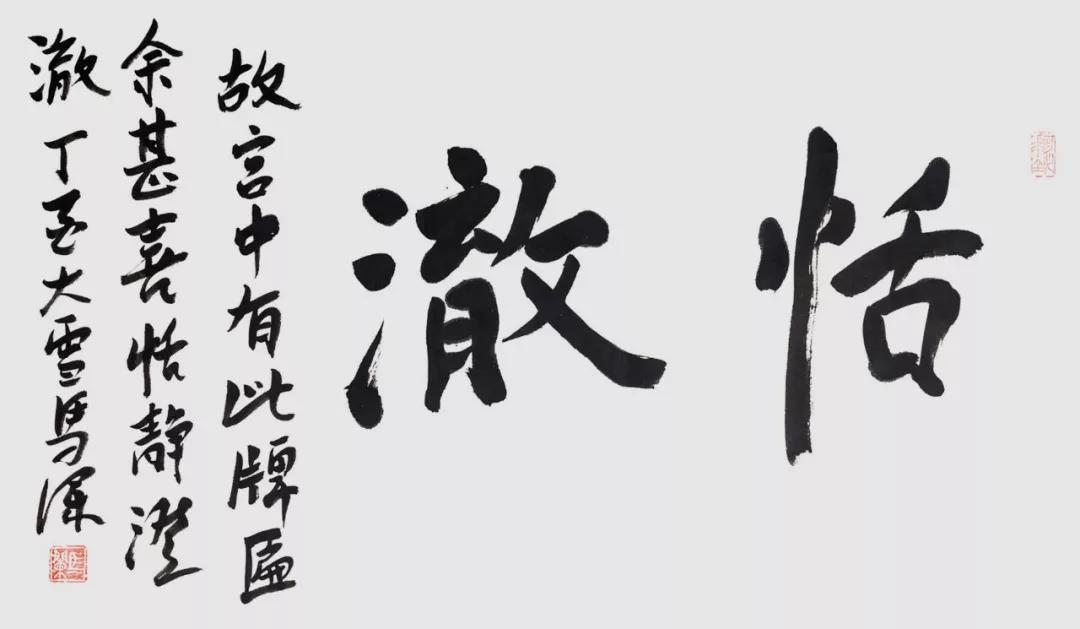 恬澈
故宫中有此牌匾
余甚喜恬靜澄
澈丁酉大雪馬